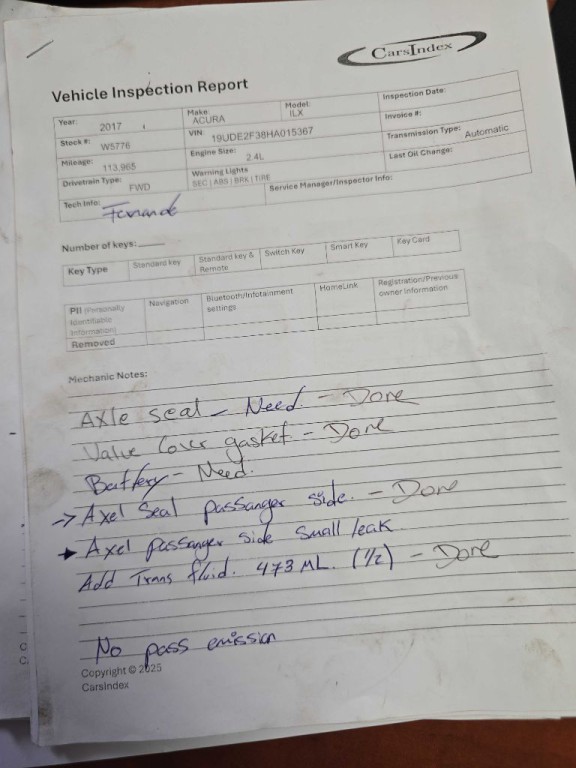 CarsIndex
Vehicle Inspection Report
Year: 2017 Make: ACURA Model: ILX Inspection Date:
Stock #: W5776 VIN: 19UDE2F38HA015367 Invoice #:
Mileage: 113,965 Engine Size: 2.4L Transmission Type: Automatic
Drivetrain Type: FWD Warning Lights SEC | ABS | BRK | TIRE Last Oil Change:
Tech Info: Service Manager/Inspector Info:
Number of keys:
Key Type Standard key Standard key & Remote Switch Key Smart Key Key Card
PII (Personally Identifiable Information) Removed Navigation Bluetooth/Infotainment settings HomeLink Registration/Previous owner information
Mechanic Notes:
Axle seal - Need - Done
Valve Cover gasket - Done
Battery - Need.
-> Axel Seal passanger side. - Done
Axel passanger side small leak
Add Trans fluid. 473 ML. (1/2) - Done
No pass emission
Copyright © 2025
CarsIndex